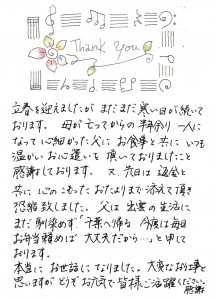 Thank You
立春を迎えましたが まだまだ 寒い日が続いて
おります。 母が亡ってからの 半年余り 一人に
なって 心細かった父に お食事と共に いつも
温かい お心遣いを 頂いておりましたこと
感謝しております。 又、先日は 返金と
共に 心のこもった おたよりまで 添えて頂き
恐縮致しました。 父は 出雲の生活に
まだ 馴染めず 「千葉へ帰る 今度は毎日
お弁当頼めば 大丈夫だから…」と申して
おります。
本当に お世話になりました。 大変なお仕事と
思いますが どうぞ お元気で 皆様ご活躍ください。
感謝